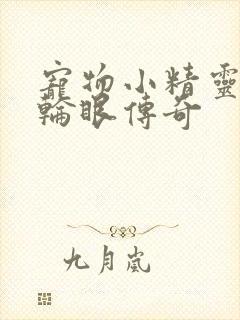 寵物小精靈
輪眼傳奇
九月嵐